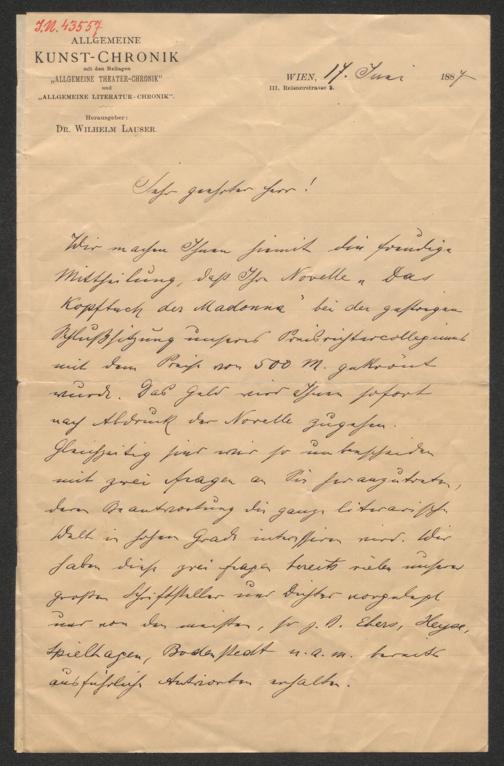 I.N. 43557
ALLGEMEINE
KUNST-CHRONIK
mit den Beilagen
„ALLGEMEINE THEATER-CHRONIK"
und
„ALLGEMEINE LITERATUR-CHRONIK".
Herausgeber:
DR. WILHELM LAUSER.
WIEN, 17. Juni 1887
III. Reisnerstrasse 3.
Sehr geehrter Herr!
Wir machen Ihnen hiemit die freudige
Mittheilung, daß Ihre Novelle „Das
Kopftuch der Madonna" bei der gestrigen
Schlußsitzung unseres Preisrichtercollegiums
mit dem Preise von 500 M. gekrönt
wurde. Das Geld wird Ihnen sofort
nach Abdruck der Novelle zugehen.
Gleichzeitig sind wir so unbescheiden
mit zwei Fragen an Sie heranzutreten,
deren Beantwortung die ganze literarische
Welt in hohem Grade interessiren wird. Wir
haben diese zwei Fragen bereits vielen unserer
großen Schriftsteller und Dichter vorgelegt
und von den meisten, so z. B. Ebers, Heyse,
Spielhagen, Bodenstedt u. a. m. bereits
ausführliche Antworten erhalten.